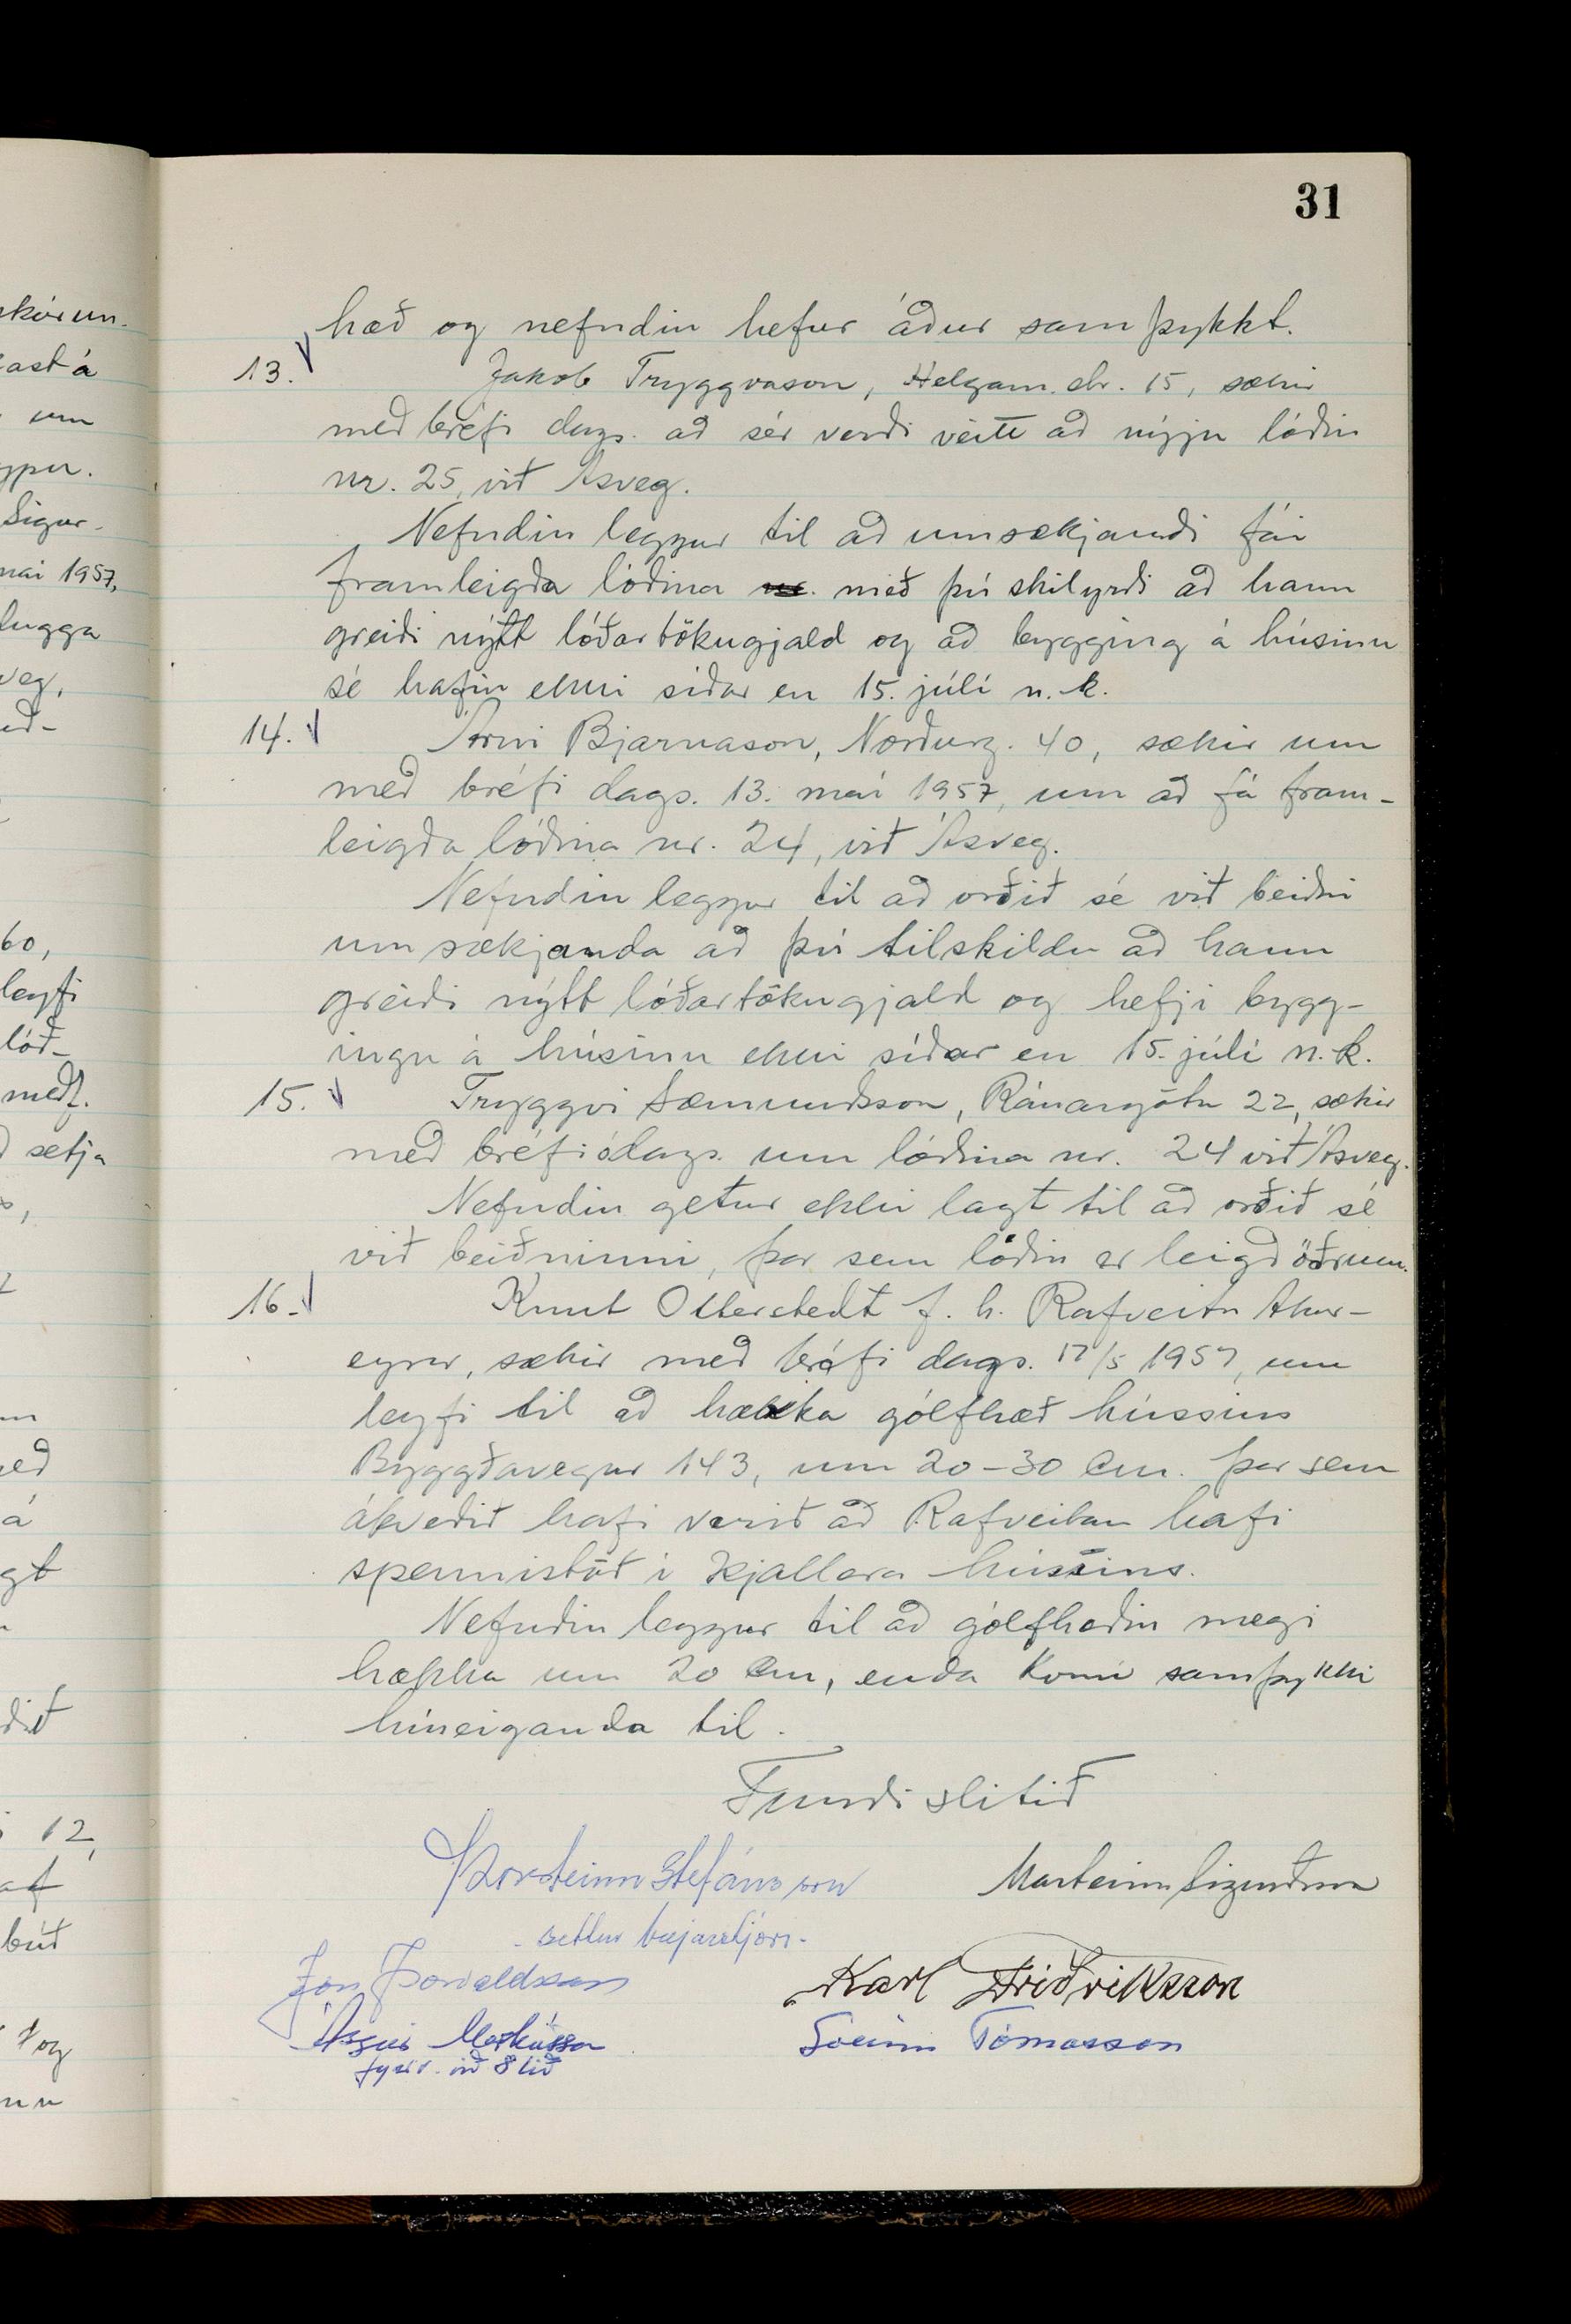 31
hæð og nefndin hefur áður samþykkt.
13. Jakob Tryggvason, Helgam.str. 15, sækir
með bréfi dags. að sér verði veitt að nýju lóðin
nr. 25, við Ásveg.
Nefndin leggur til að umsækjandi fái
framleigða lóðina nr. með því skilyrði að hann
greiði nýtt lóðartökugjald og að bygging á húsinu
sé hafin ekki síðar en 15. júlí n.k.
14. Árni Bjarnason, Norðurg. 40, sækir um
með bréfi dags. 13. maí 1957, um að fá fram-
leigða lóðina nr. 24, við Ásveg.
Nefndin leggur til að orðið sé við beiðni
umsækjanda að því tilskildu að hann
greiði nýtt lóðartökugjald og hefji bygg-
ingu á húsinu ekki síðar en 15. júlí n.k.
15. Tryggvi Sæmundsson, Ránargötu 22, sækir
með bréfi ódags. um lóðina nr. 24 við Ásveg.
Nefndin getur ekki lagt til að orðið sé
við beiðninni, þar sem lóðin er leigð öðrum.
16. Knut Otterstedt f.h. Rafveitu Akur-
eyrar, sækir með bréfi dags. 17/5 1957, um
leyfi til að hækka gólfhæð hússins
Byggðavegur 143, um 20-30 cm. þar sem
ákveðið hafi verið að Rafveitan hafi
spennistöð í kjallara hússins.
Nefndin leggur til að gólfhæðin megi
hækka um 20 cm, enda komi samþykki
húseiganda til.
Fundi slitið
Þorsteinn Stefánsson Marteinn Sigurðsson
- settur bæjarstjóri -
Jón Þorvaldsson Karl Friðriksson
Ásgeir Markússon Sveinn Tómasson
fyrirv. við 8 lið